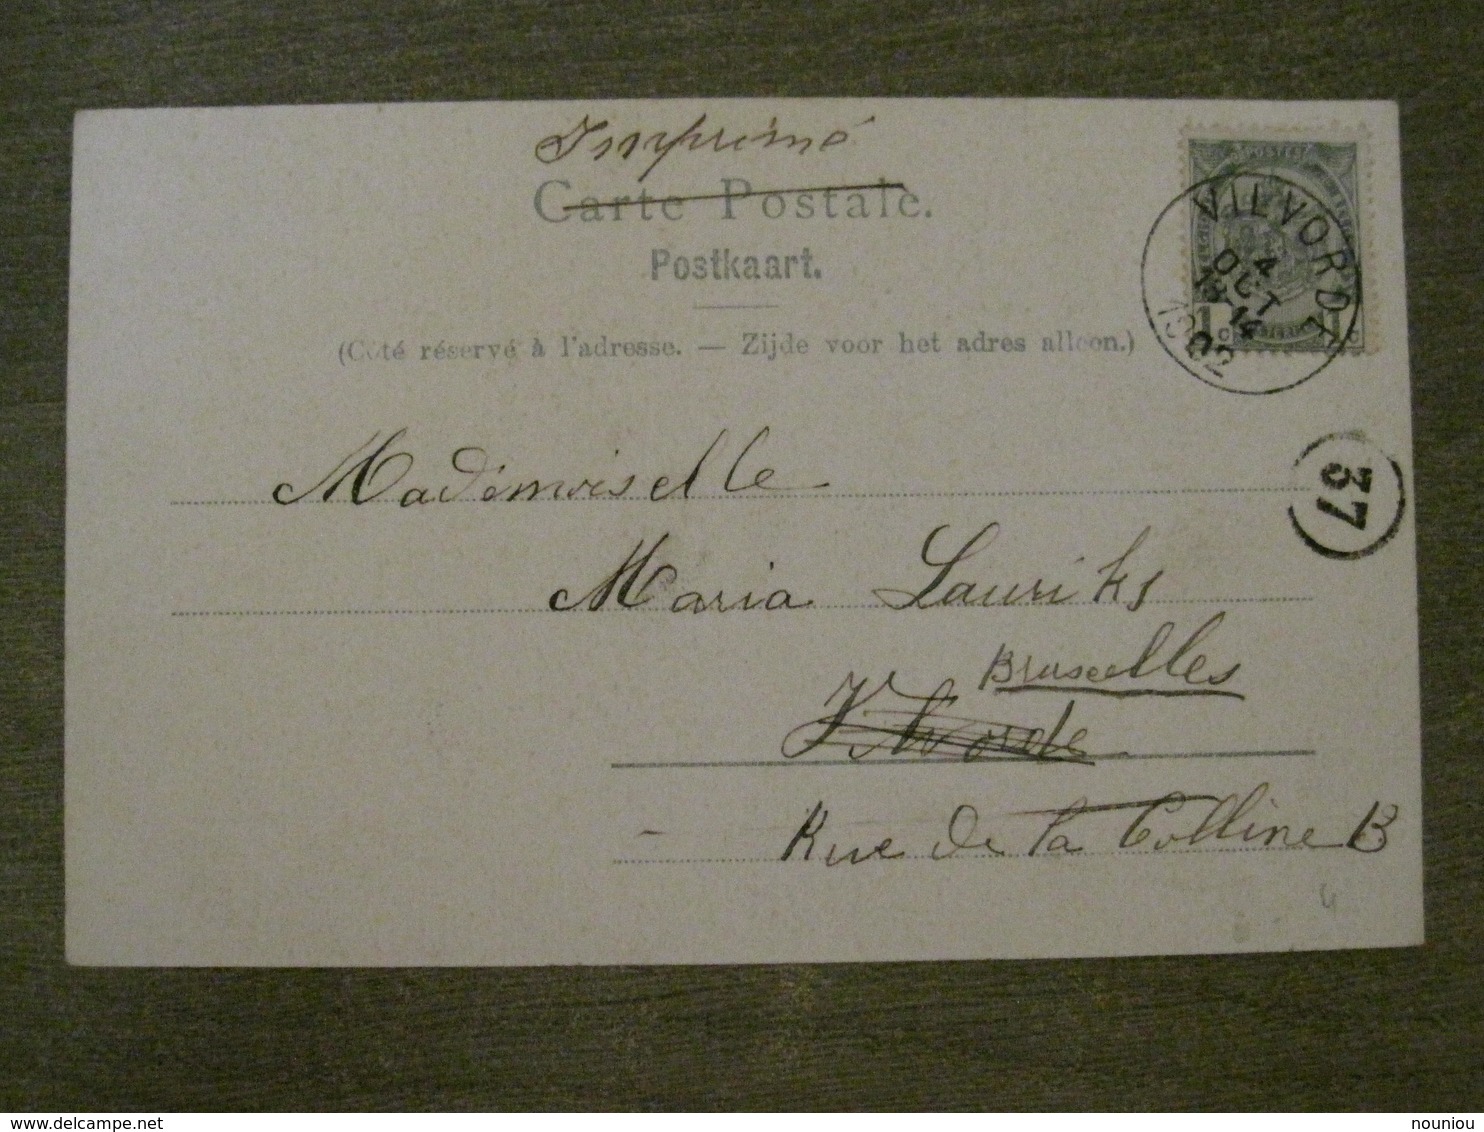 Imprimé
Carte Postale.
Postkaart.
(Côté réservé à l'adresse. — Zijde voor het adres alleen.)
VILVORDE
4
OCT
13-14
1902
1c
1c
37
Mademoiselle
Maria Lauriks
Bruxelles
Vilvorde
Rue de la Colline B
4
nouniou